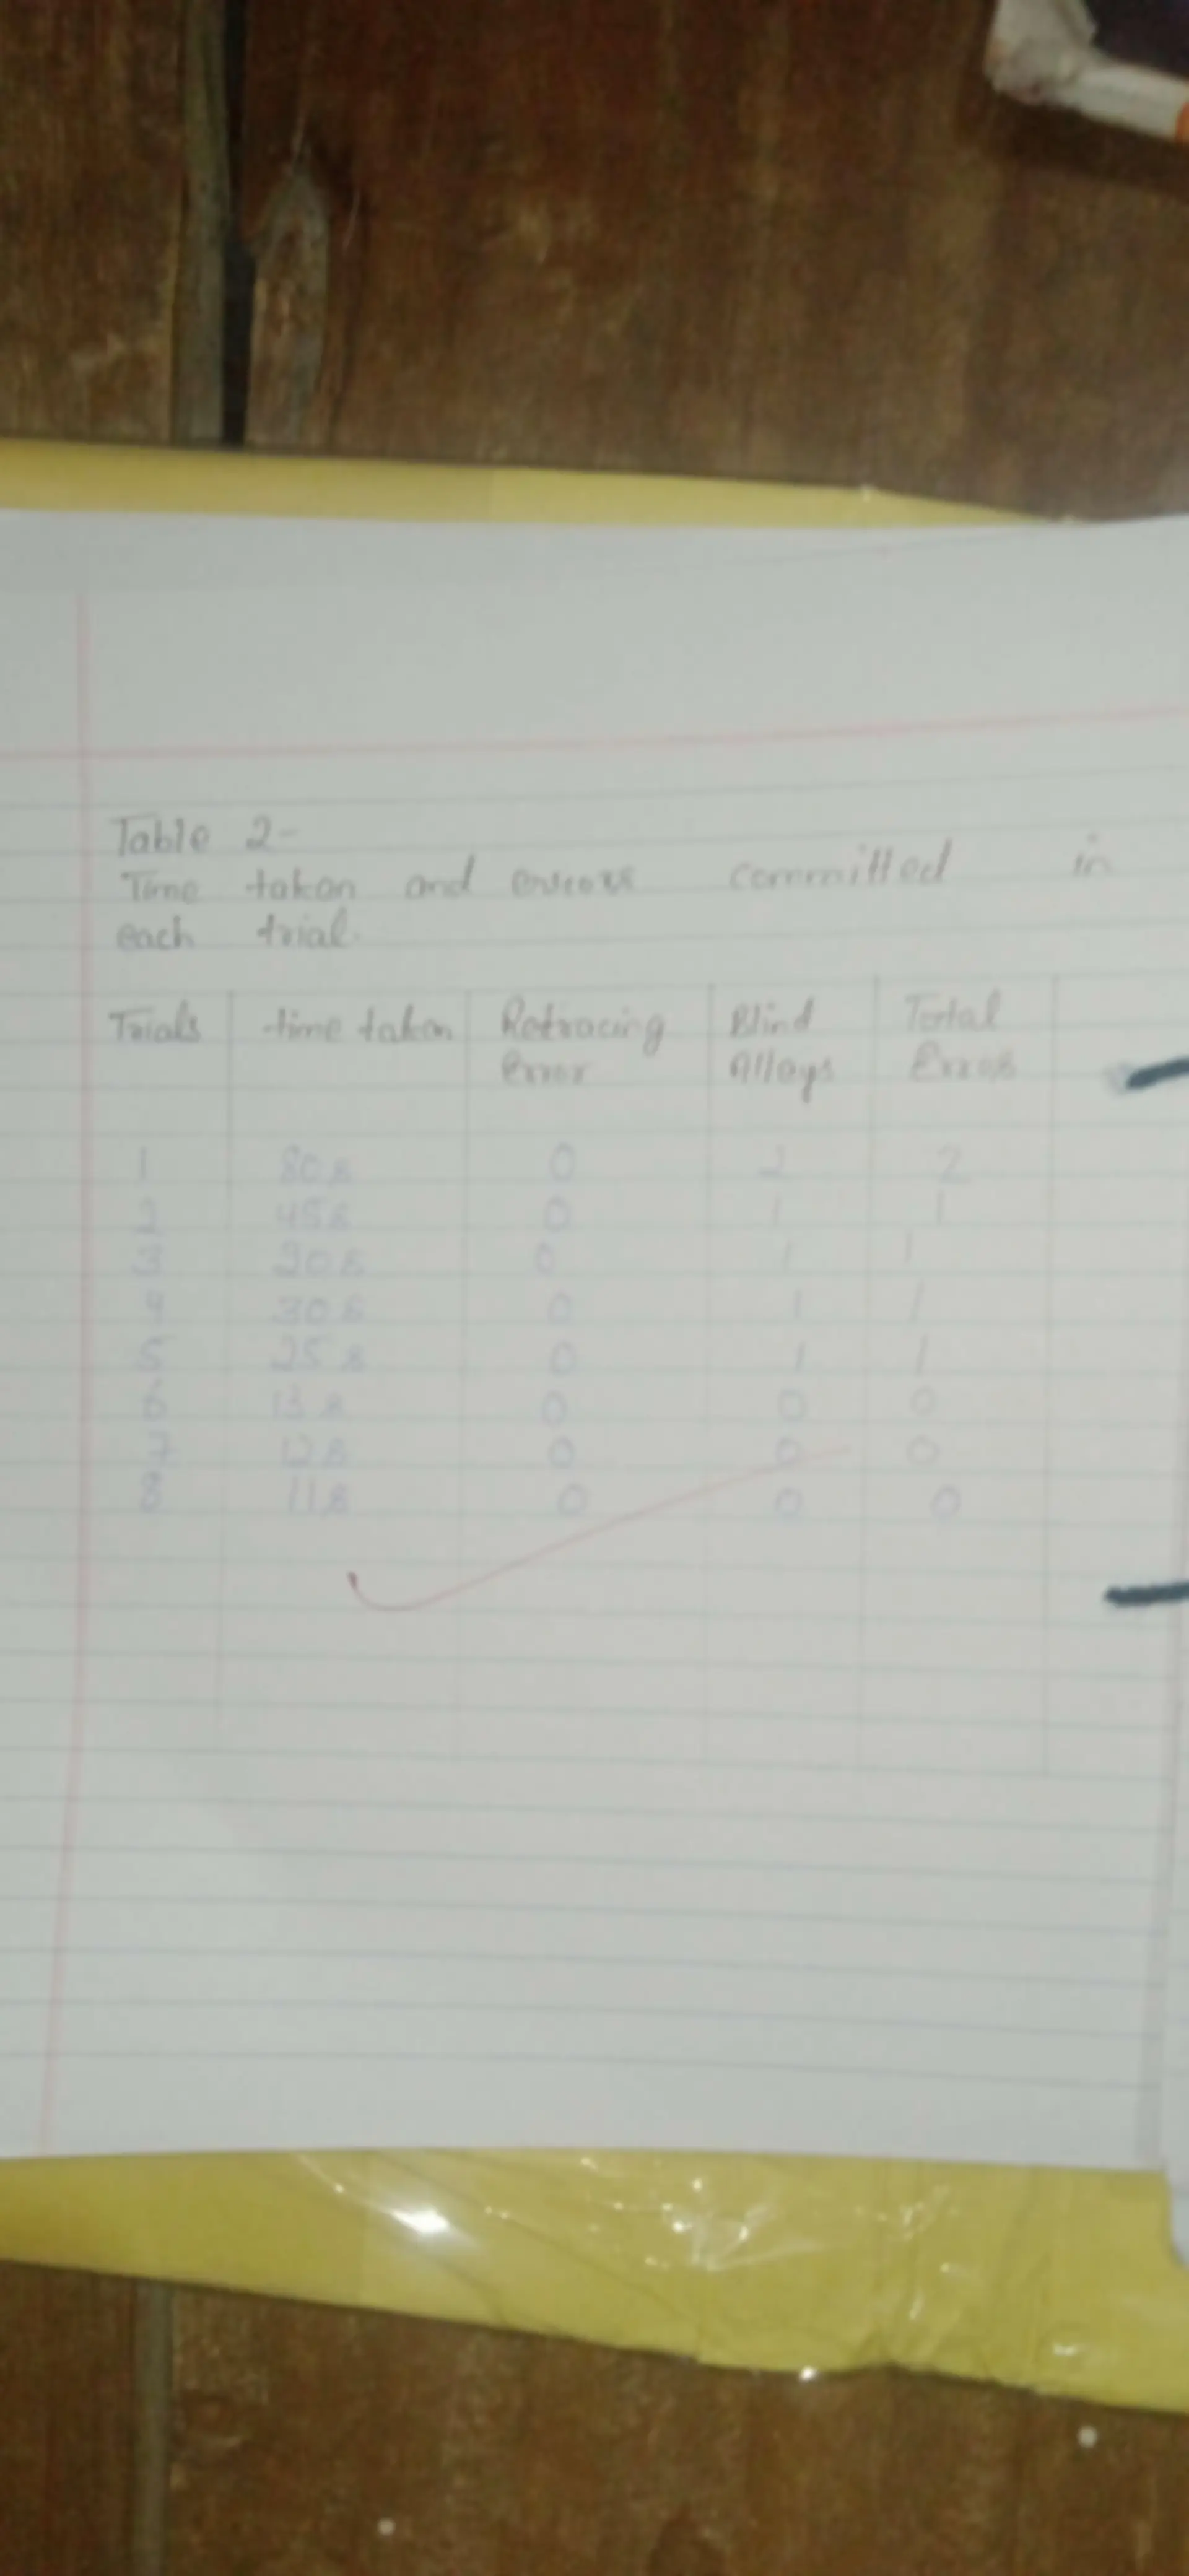 Table 2-
Time taken and errors committed in
each trial.
Trials time taken Retracing Blind Total
Error Alleys Error
1 80s 0 2 2
2 45s 0 1 1
3 30s 0 1 1
4 30s 0 1 1
5 25s 0 1 1
6 13s 0 0 0
7 12s 0 0 0
8 11s 0 0 0